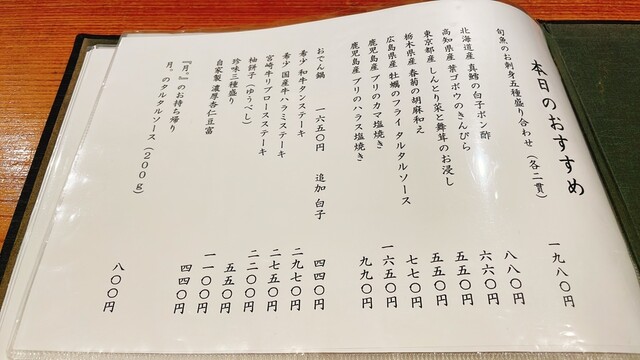 本日のおすすめ
旬魚のお刺身五種盛り合わせ（各二貫） 一九八〇円
北海道産 真鱈の白子ポン酢 八八〇円
高知県産 葉ゴボウのきんぴら 六六〇円
東京都産 しんとり菜と舞茸のお浸し 五五〇円
栃木県産 春菊の胡麻和え 五五〇円
広島県産 牡蠣のフライ タルタルソース 七七〇円
鹿児島産 ブリのカマ塩焼き 一六五〇円
鹿児島産 ブリのハラス塩焼き 九九〇円
おでん鍋 一六五〇円 追加 白子 四四〇円
希少 和牛タンステーキ 二九七〇円
希少 国産牛ハラミステーキ 二七五〇円
宮崎牛リブロースステーキ 二二〇〇円
柚餅子（ゆうべし） 五五〇円
珍味三種盛り 一一〇〇円
自家製 濃厚杏仁豆富 四四〇円
『月。』のお持ち帰り
月。のタルタルソース（２００ｇ） 八〇〇円